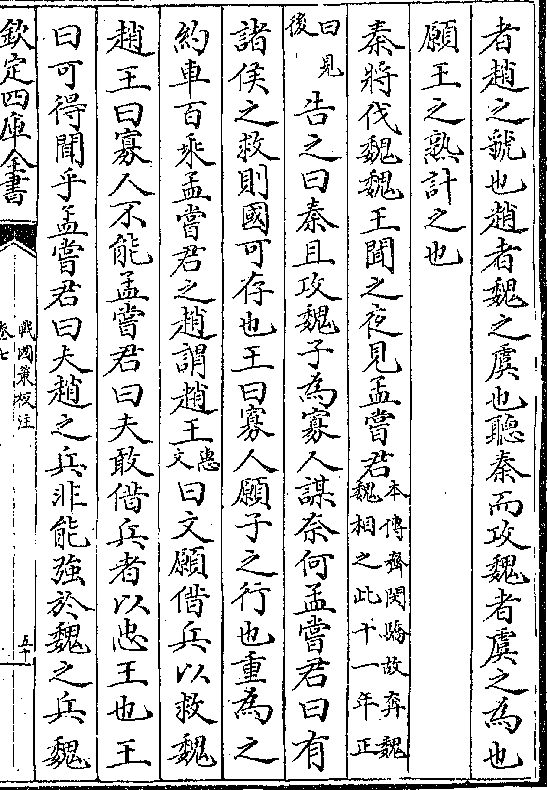 者趙之虢也趙者魏之虞也聽秦而攻魏者虞之為也
願王之熟計之也
秦將伐魏魏王聞之夜見孟嘗君本傳齊閔驕故奔魏魏相之此十一年正
曰見後告之曰秦且攻魏子為寡人謀奈何孟嘗君曰有
諸侯之救則國可存也王曰寡人願子之行也重為之
約車百乘孟嘗君之趙謂趙王惠文曰文願借兵以救魏
趙王曰寡人不能孟嘗君曰夫敢借兵者以忠王也王
曰可得聞乎孟嘗君曰夫趙之兵非能強於魏之兵魏
欽定四庫全書
戰國策校注
卷七
五十